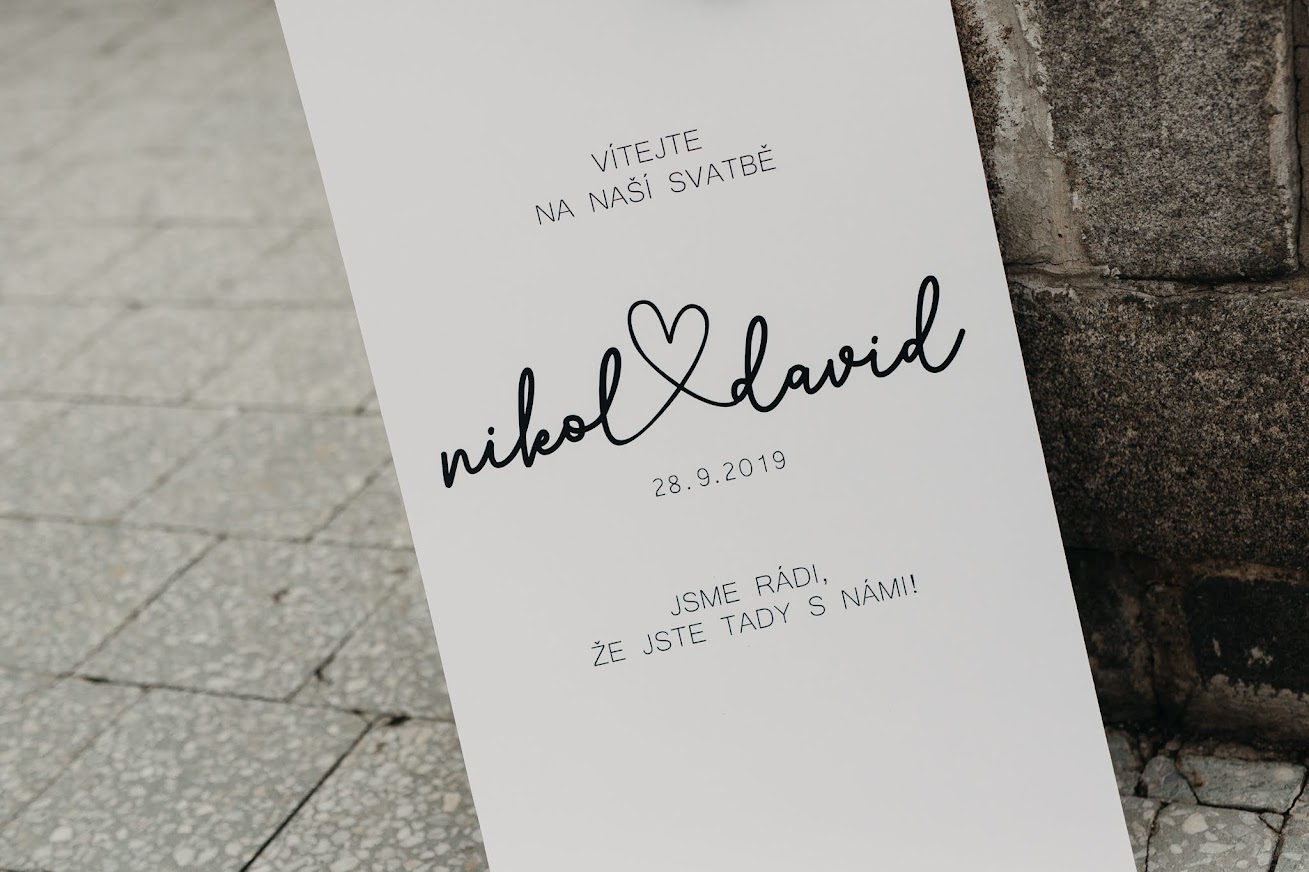 VÍTEJTE
NA NAŠÍ SVATBĚ
nikol david
28.9.2019
JSME RÁDI,
ŽE JSTE TADY S NÁMI!